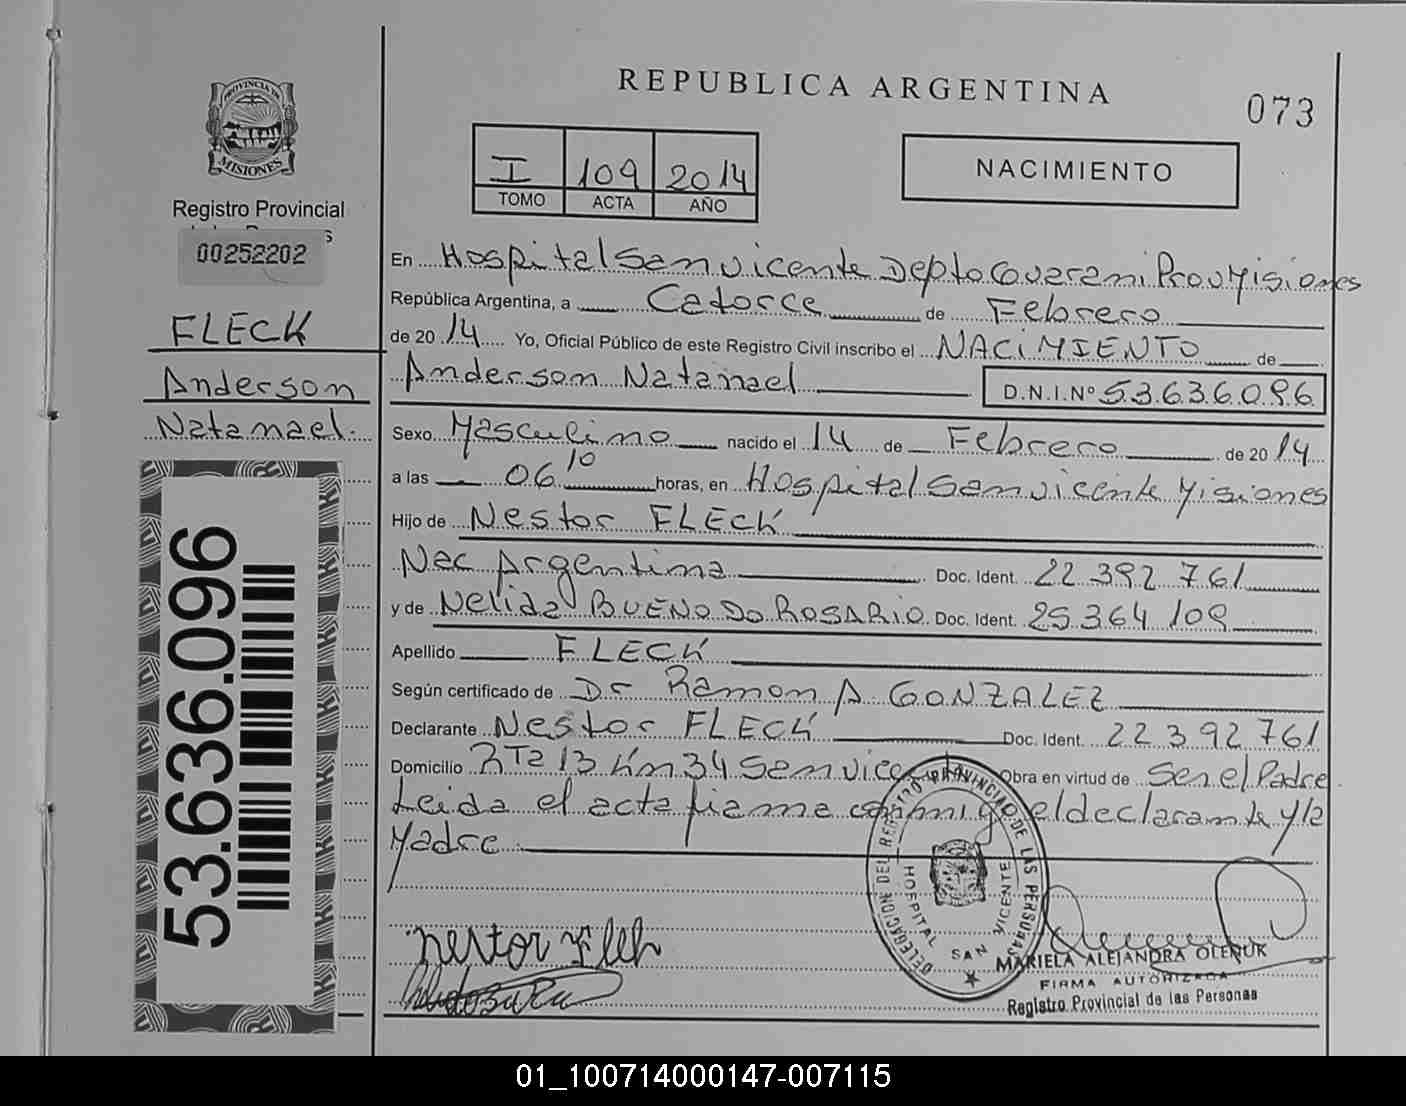 REPUBLICA ARGENTINA
073
PROVINCIA DE
MISIONES
Registro Provincial
00252202
I 109 2014
TOMO ACTA AÑO
NACIMIENTO
FLECK
Anderson
Natanael.
53.636.096
En Hospital San vicente Depto Guarani Prov Misiones
República Argentina, a Catorce de Febrero
de 20 14 Yo, Oficial Público de este Registro Civil inscribo el NACIMIENTO de
Anderson Natanael D.N.I.Nº 53.636.096
Sexo Masculino nacido el 14 de Febrero de 20 14
a las 06 10 horas, en Hospital San vicente Misiones
Hijo de Nestor FLECK
Nac Argentina Doc. Ident. 22 392 761
y de Nelida BUENO DO ROSARIO Doc. Ident. 25364 109
Apellido FLECK
Según certificado de Dr Ramon A GONZALEZ
Declarante Nestor FLECK Doc. Ident. 22 392 761
Domicilio RTa 13 Km 34 San vicente Obra en virtud de Ser el Padre
Leida el acta firma conmigo el declarante y la
Madre
nestor Fleck
DELEGACION DEL REGISTRO PROVINCIAL DE LAS PERSONAS
HOSPITAL SAN VICENTE
MARIELA ALEJANDRA OLENUK
FIRMA AUTORIZADA
Registro Provincial de las Personas
01_100714000147-007115